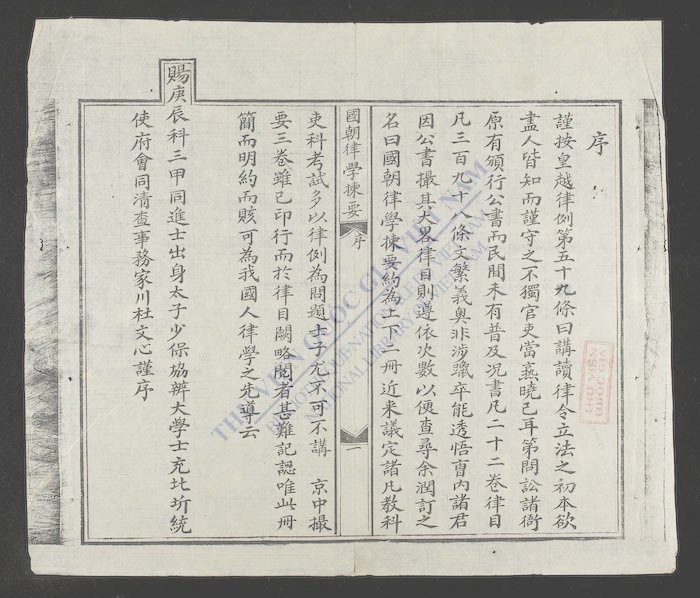 序
謹按皇越律例第五十九條曰講讀律令立法之初本欲
盡人皆知而謹守之不獨官吏當熹曉已耳第閱訟諸衙
原有頒行公書而民間未有普及况書凡二十二卷律目
凡三百九十八條文繁義奧非涉躐卒能透悟曺內諸君
因公書撮其大畧律目則遵依次數以便查尋余潤訂之
名曰國朝律學揀要約為上下二冊近来議定諸凡教科
國朝律學揀要
序
一
吏科考試多以律例為問題士子尤不可不講 京中撮
要三卷雖已印行而於律目闕略閱者甚難記認唯此冊
簡而明約而賅可為我國人律學之先導云
賜庚辰科三甲同進士出身太子少保協辦大學士充北圻統
使府會同清查事務家川杜文心謹序
THƯ VIỆN QUỐC GIA VIỆT NAM
BIBLIOTHEQUE NATIONALE DU VIETNAM
NATIONAL LIBRARY OF VIETNAM
THƯ VIỆN
QUỐC GIA